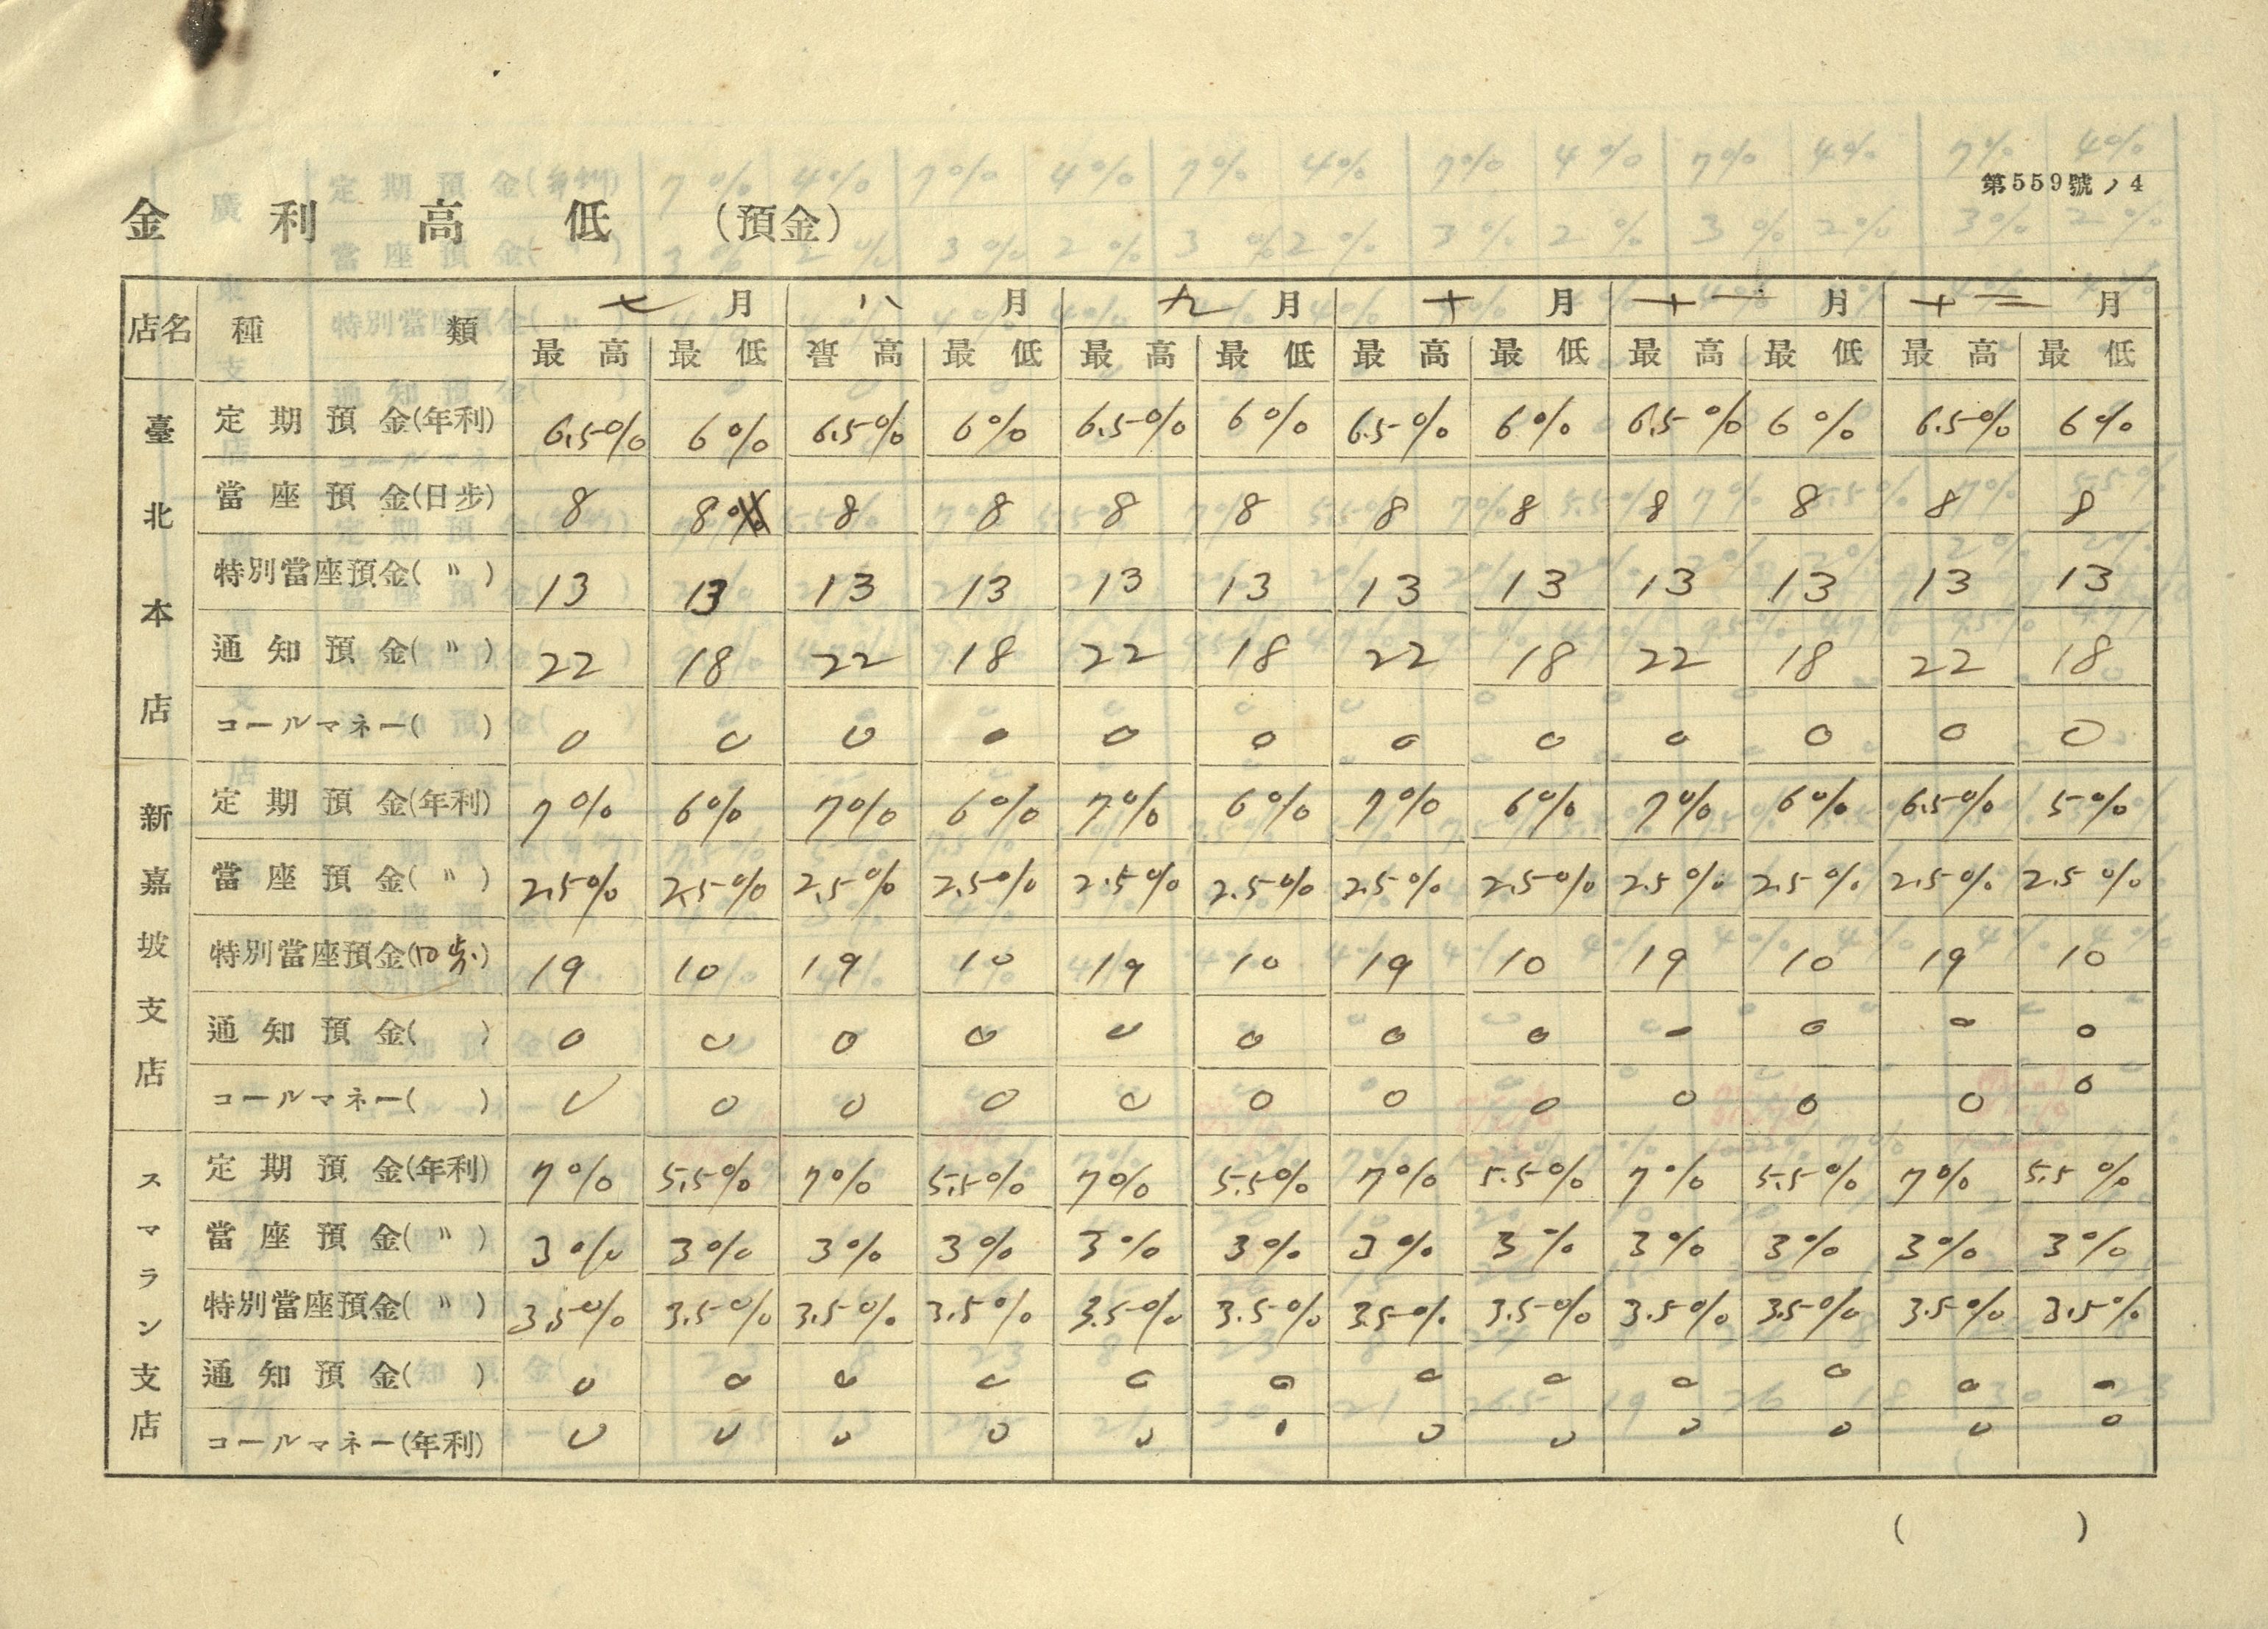 第559號ノ4
金利高低 (預金)
店名 種類 七月 八月 九月 十月 十一月 十二月
最高 最低 最高 最低 最高 最低 最高 最低 最高 最低 最高 最低
臺北本店
定期預金(年利) 6.5% 6% 6.5% 6% 6.5% 6% 6.5% 6% 6.5% 6% 6.5% 6%
當座預金(日步) 8 8 8 8 8 8 8 8 8 8 8 8
特別當座預金(〃) 13 13 13 13 13 13 13 13 13 13 13 13
通知預金(〃) 22 18 22 18 22 18 22 18 22 18 22 18
コールマネー( ) 0 0 0 0 0 0 0 0 0 0 0 0
新嘉坡支店
定期預金(年利) 7% 6% 7% 6% 7% 6% 7% 6% 7% 6% 6.5% 5%
當座預金(〃) 2.5% 2.5% 2.5% 2.5% 2.5% 2.5% 2.5% 2.5% 2.5% 2.5% 2.5% 2.5%
特別當座預金(日步) 19 10 19 10 19 10 19 10 19 10 19 10
通知預金( ) 0 0 0 0 0 0 0 0 0 0 0 0
コールマネー( ) 0 0 0 0 0 0 0 0 0 0 0 0
スマラン支店
定期預金(年利) 7% 5.5% 7% 5.5% 7% 5.5% 7% 5.5% 7% 5.5% 7% 5.5%
當座預金(〃) 3% 3% 3% 3% 3% 3% 3% 3% 3% 3% 3% 3%
特別當座預金(〃) 3.5% 3.5% 3.5% 3.5% 3.5% 3.5% 3.5% 3.5% 3.5% 3.5% 3.5% 3.5%
通知預金( ) 0 0 0 0 0 0 0 0 0 0 0 0
コールマネー(年利) 0 0 0 0 0 0 0 0 0 0 0 0
( )